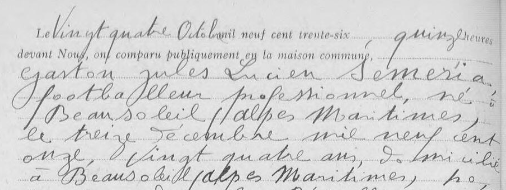 Le Vingt quatre Octobre mil neuf cent trente-six, quinze heures
devant Nous, ont comparu publiquement en la maison commune,
Gaston Jules Lucien Séméria
footballeur professionnel, né à
Beausoleil (Alpes Maritimes,
le treize décembre mil neuf cent
onze, vingt quatre ans, domicilié
à Beausoleil (Alpes Maritimes,